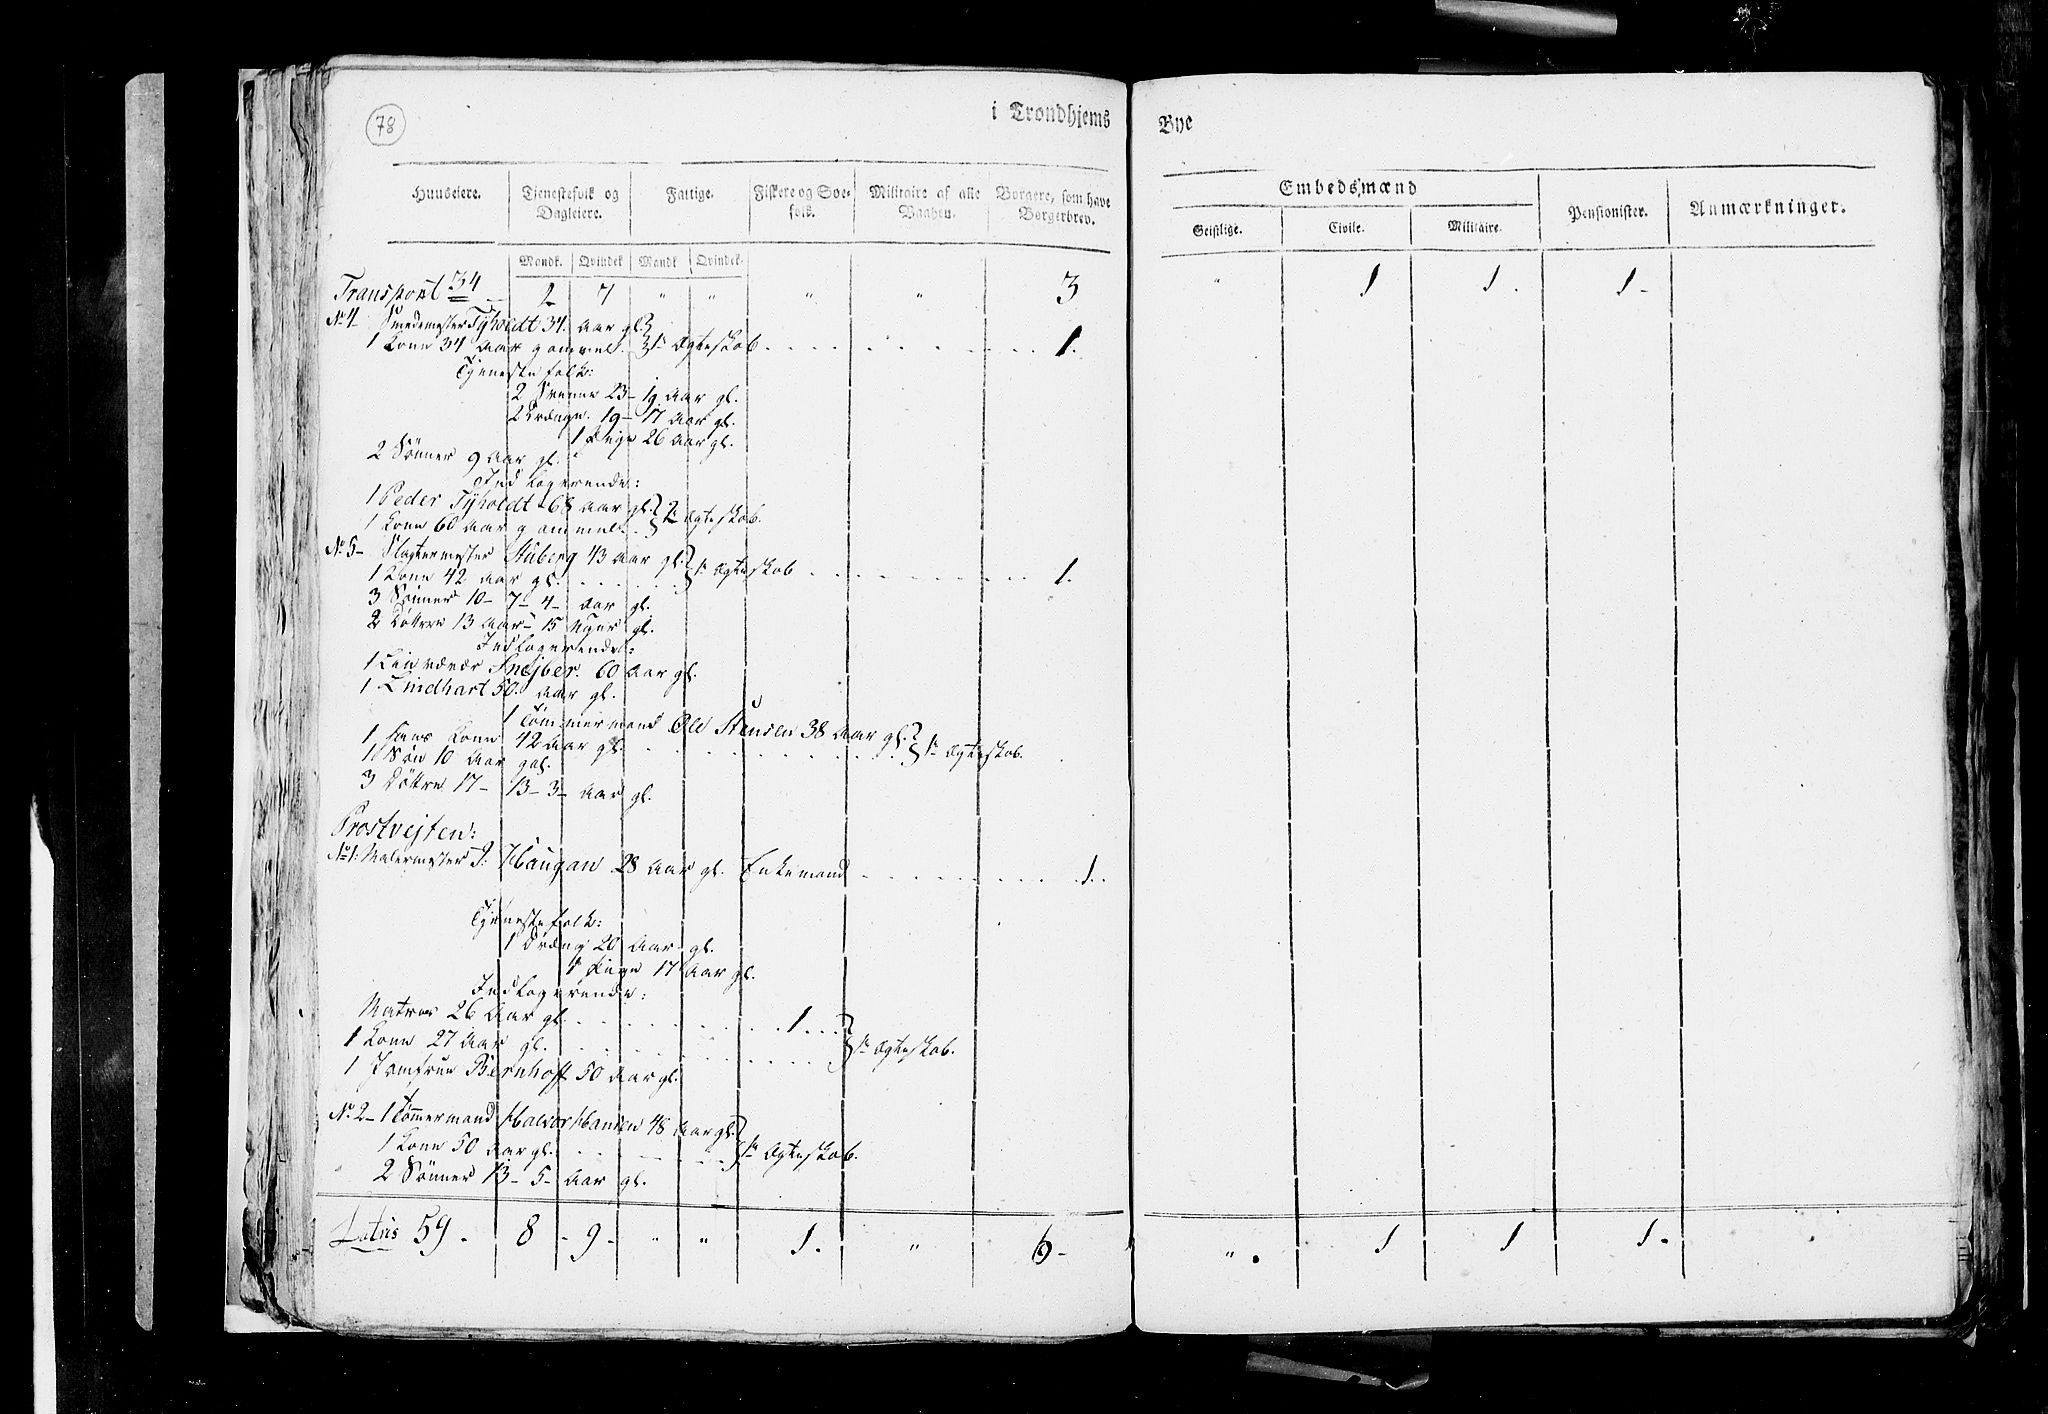 78
i Trondhjems Bye
Huuseiere. Tjenestefolk og Dagleiere. Fattige. Fiskere og Søefolk. Militaire af alle Vaaben. Borgere, som have Borgerbrev. Embedsmænd Pensionister. Anmærkninger.
Geistlige. Civile. Militaire.
Mandk. Qvindek Mandk Qvindek.
Transport 34 2 7 " " " " 3 " 1 1. 1-
No 4- Smedemester Tyholdt 34. Aar gl.
1 Kone 34 Aar gammel. 1te Ægteskab 1.
Tjenestefolk:
2 Svenne 23- 19 Aar gl.
2 Drænge. 19- 17 Aar gl.
1 Pige 26 Aar gl.
2 Sønner 9 Aar gl.
Indlogerende:
1 Peder Tyholdt 68 Aar gl. 2te Ægteskab.
1 Kone 60 Aar gammel.
No 5- Slagtermester Stüberg 43 Aar gl. 1te Ægteskab 1.
1 Kone 42 Aar gl.
3 Sønner 10- 7- 4- Aar gl.
2 Døttre 13 Aar- 15 Uger gl.
Indlogerende:
1 Linvæver Snejber. 60 Aar gl.
1 Lindhart 50. Aar gl.
1 Tømmermand Ole Stensen 38 Aar gl.
1 Hans Kone 42 Aar gl. 1te Ægteskab.
1 Søn 10 Aar gl.
3 Døttre 17- 13- 3- Aar gl.
Prostvejten:
No 1: Malermester J: Haugan 28 Aar gl. Enkemand 1.
Tjenestefolk:
1 Dræng 20 Aar gl.
1 Pige 17 Aar gl.
Indlogerende:
Matros 26 Aar gl. 1
1 Kone 27 Aar gl. 1te Ægteskab.
1 Jomfrue Bernhoff 50 Aar gl.
No. 2- 1 Tømmermand Halvor Hansen 48 Aar gl.
1 Kone 50 Aar gl. 1te Ægteskab.
2 Sønner 13- 5- Aar gl.
Latus 59. 8 - 9 - " " 1. " 6- ". 1 1 1.